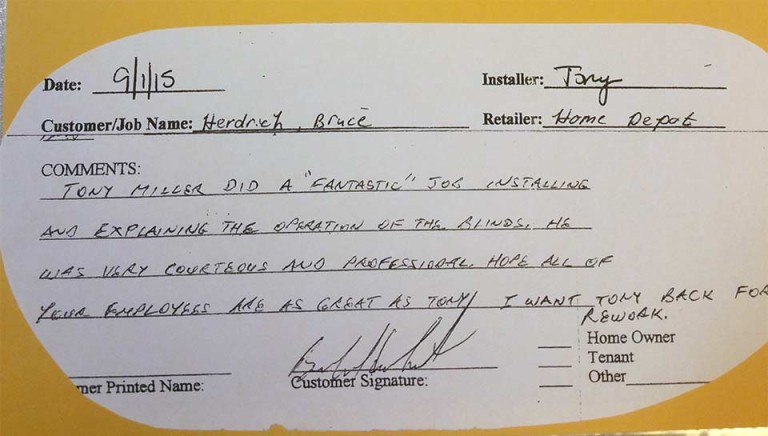 Date: 9/1/15 Installer: Tony
Customer/Job Name: Herdrich, Bruce Retailer: Home Depot
COMMENTS:
TONY MILLER DID A "FANTASTIC" JOB INSTALLING
AND EXPLAINING THE OPERATION OF THE BLINDS. HE
WAS VERY COURTEOUS AND PROFESSIONAL. HOPE ALL OF
YOUR EMPLOYEES ARE AS GREAT AS TONY! I WANT TONY BACK FOR
REWORK.
Home Owner
Tenant
mer Printed Name: Customer Signature: Other